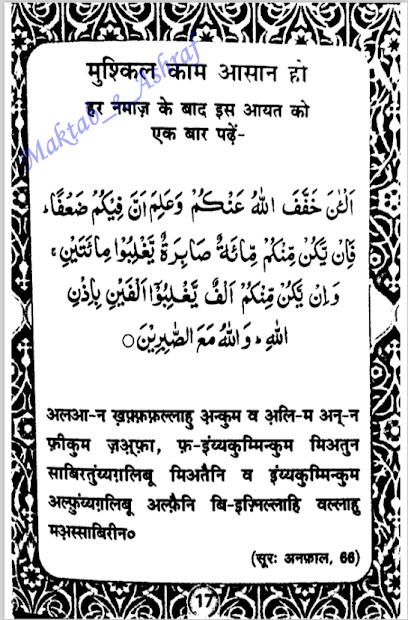 मुश्किल काम आसान हो
हर नमाज़ के बाद इस आयत को
एक बार पढ़ें-
Maktab_e_Ashraf
اَلْـٰٔنَ خَفَّفَ اللّٰهُ عَنْكُمْ وَعَلِمَ اَنَّ فِيْكُمْ ضَعْفًا ؕ
فَاِنْ يَّكُنْ مِّنْكُمْ مِّائَةٌ صَابِرَةٌ يَّغْلِبُوْا مِائَتَيْنِ ۚ
وَاِنْ يَّكُنْ مِّنْكُمْ اَلْفٌ يَّغْلِبُوْۤا اَلْفَيْنِ بِاِذْنِ
اللّٰهِ ؕ وَاللّٰهُ مَعَ الصّٰبِرِيْنَ ○
अलआ-न ख़फ़्फ़फ़ल्लाहु अ़न्कुम व अ़लि-म अन्-न
फ़ीकुम ज़अ़्फ़ा, फ़-इंय्यकुम्मिन्कुम मिअतुन
साबिरतुंय्यग़लिबू मिअतैनि व इंय्यकुम्मिन्कुम
अल्फ़ुंय्यग़लिबू अल्फ़ैनि बि-इज़्निल्लाहि वल्लाहु
मअ़स्साबिरीन०
(सूरः अनफ़ाल, 66)
17